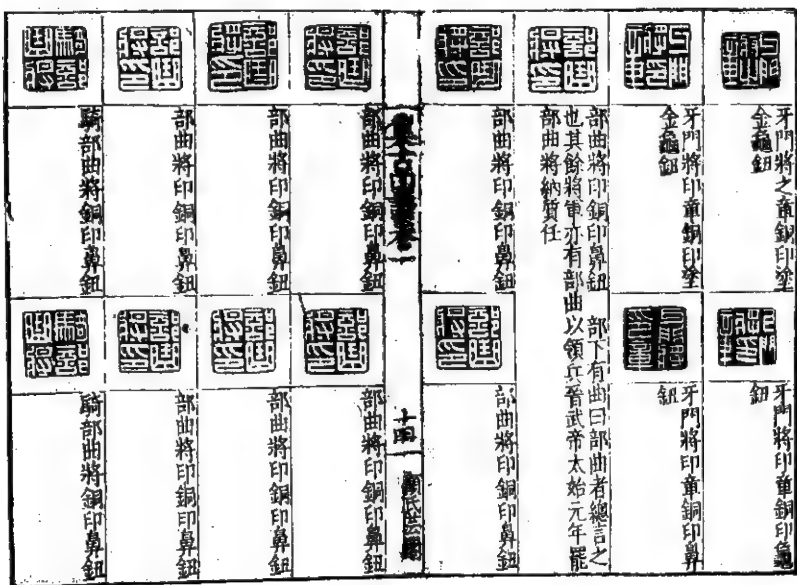 牙門將之章銅印塗
金龜鈕
牙門將印章銅印龜
鈕
牙門將印章銅印塗
金龜鈕
牙門將印章銅印鼻
鈕
部曲將印銅印鼻鈕 部下有曲曰部曲者總言之
也其餘將軍亦有部曲以領兵晉武帝太始元年罷
部曲將納質任
部曲將印銅印鼻鈕
部曲將印銅印鼻鈕
集古印譜卷一
十四
顧氏芸閣
部曲將印銅印鼻鈕
部曲將印銅印鼻鈕
部曲將印銅印鼻鈕
部曲將印銅印鼻鈕
部曲將印銅印鼻鈕
部曲將印銅印鼻鈕
騎部曲將銅印鼻鈕
騎部曲將銅印鼻鈕